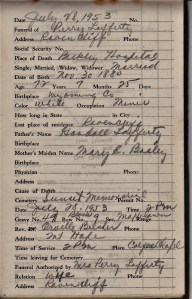 Date July 28, 1953 No.
Funeral of Perry Lafferty
Address Raven Cliff
Social Security No.
Place of Death Beckley Hospital
Single, Married, Widow, Widower Married
Date of Birth Nov. 30 1880
Age 72 Years 7 Months 28 Days
Birthplace Wyoming Co
Color White Occupation Miner
How long in State Co.
Last place of residence Ravencliff
Father's Name Lafferty
Birthplace
Mother's Maiden Name Mary E.
Birthplace
Physician Phone
Address
Cause of Death
Cemetery Sunset Memorial
Date July 28, 1953 Time 2 PM
Grave No.
Rev. Webster
Address
Time of Service 2 PM Place Chapel
Time leaving for Cemetery
Funeral Authorized by Mrs Perry Lafferty
Relation Wife Phone
Address Ravencliff